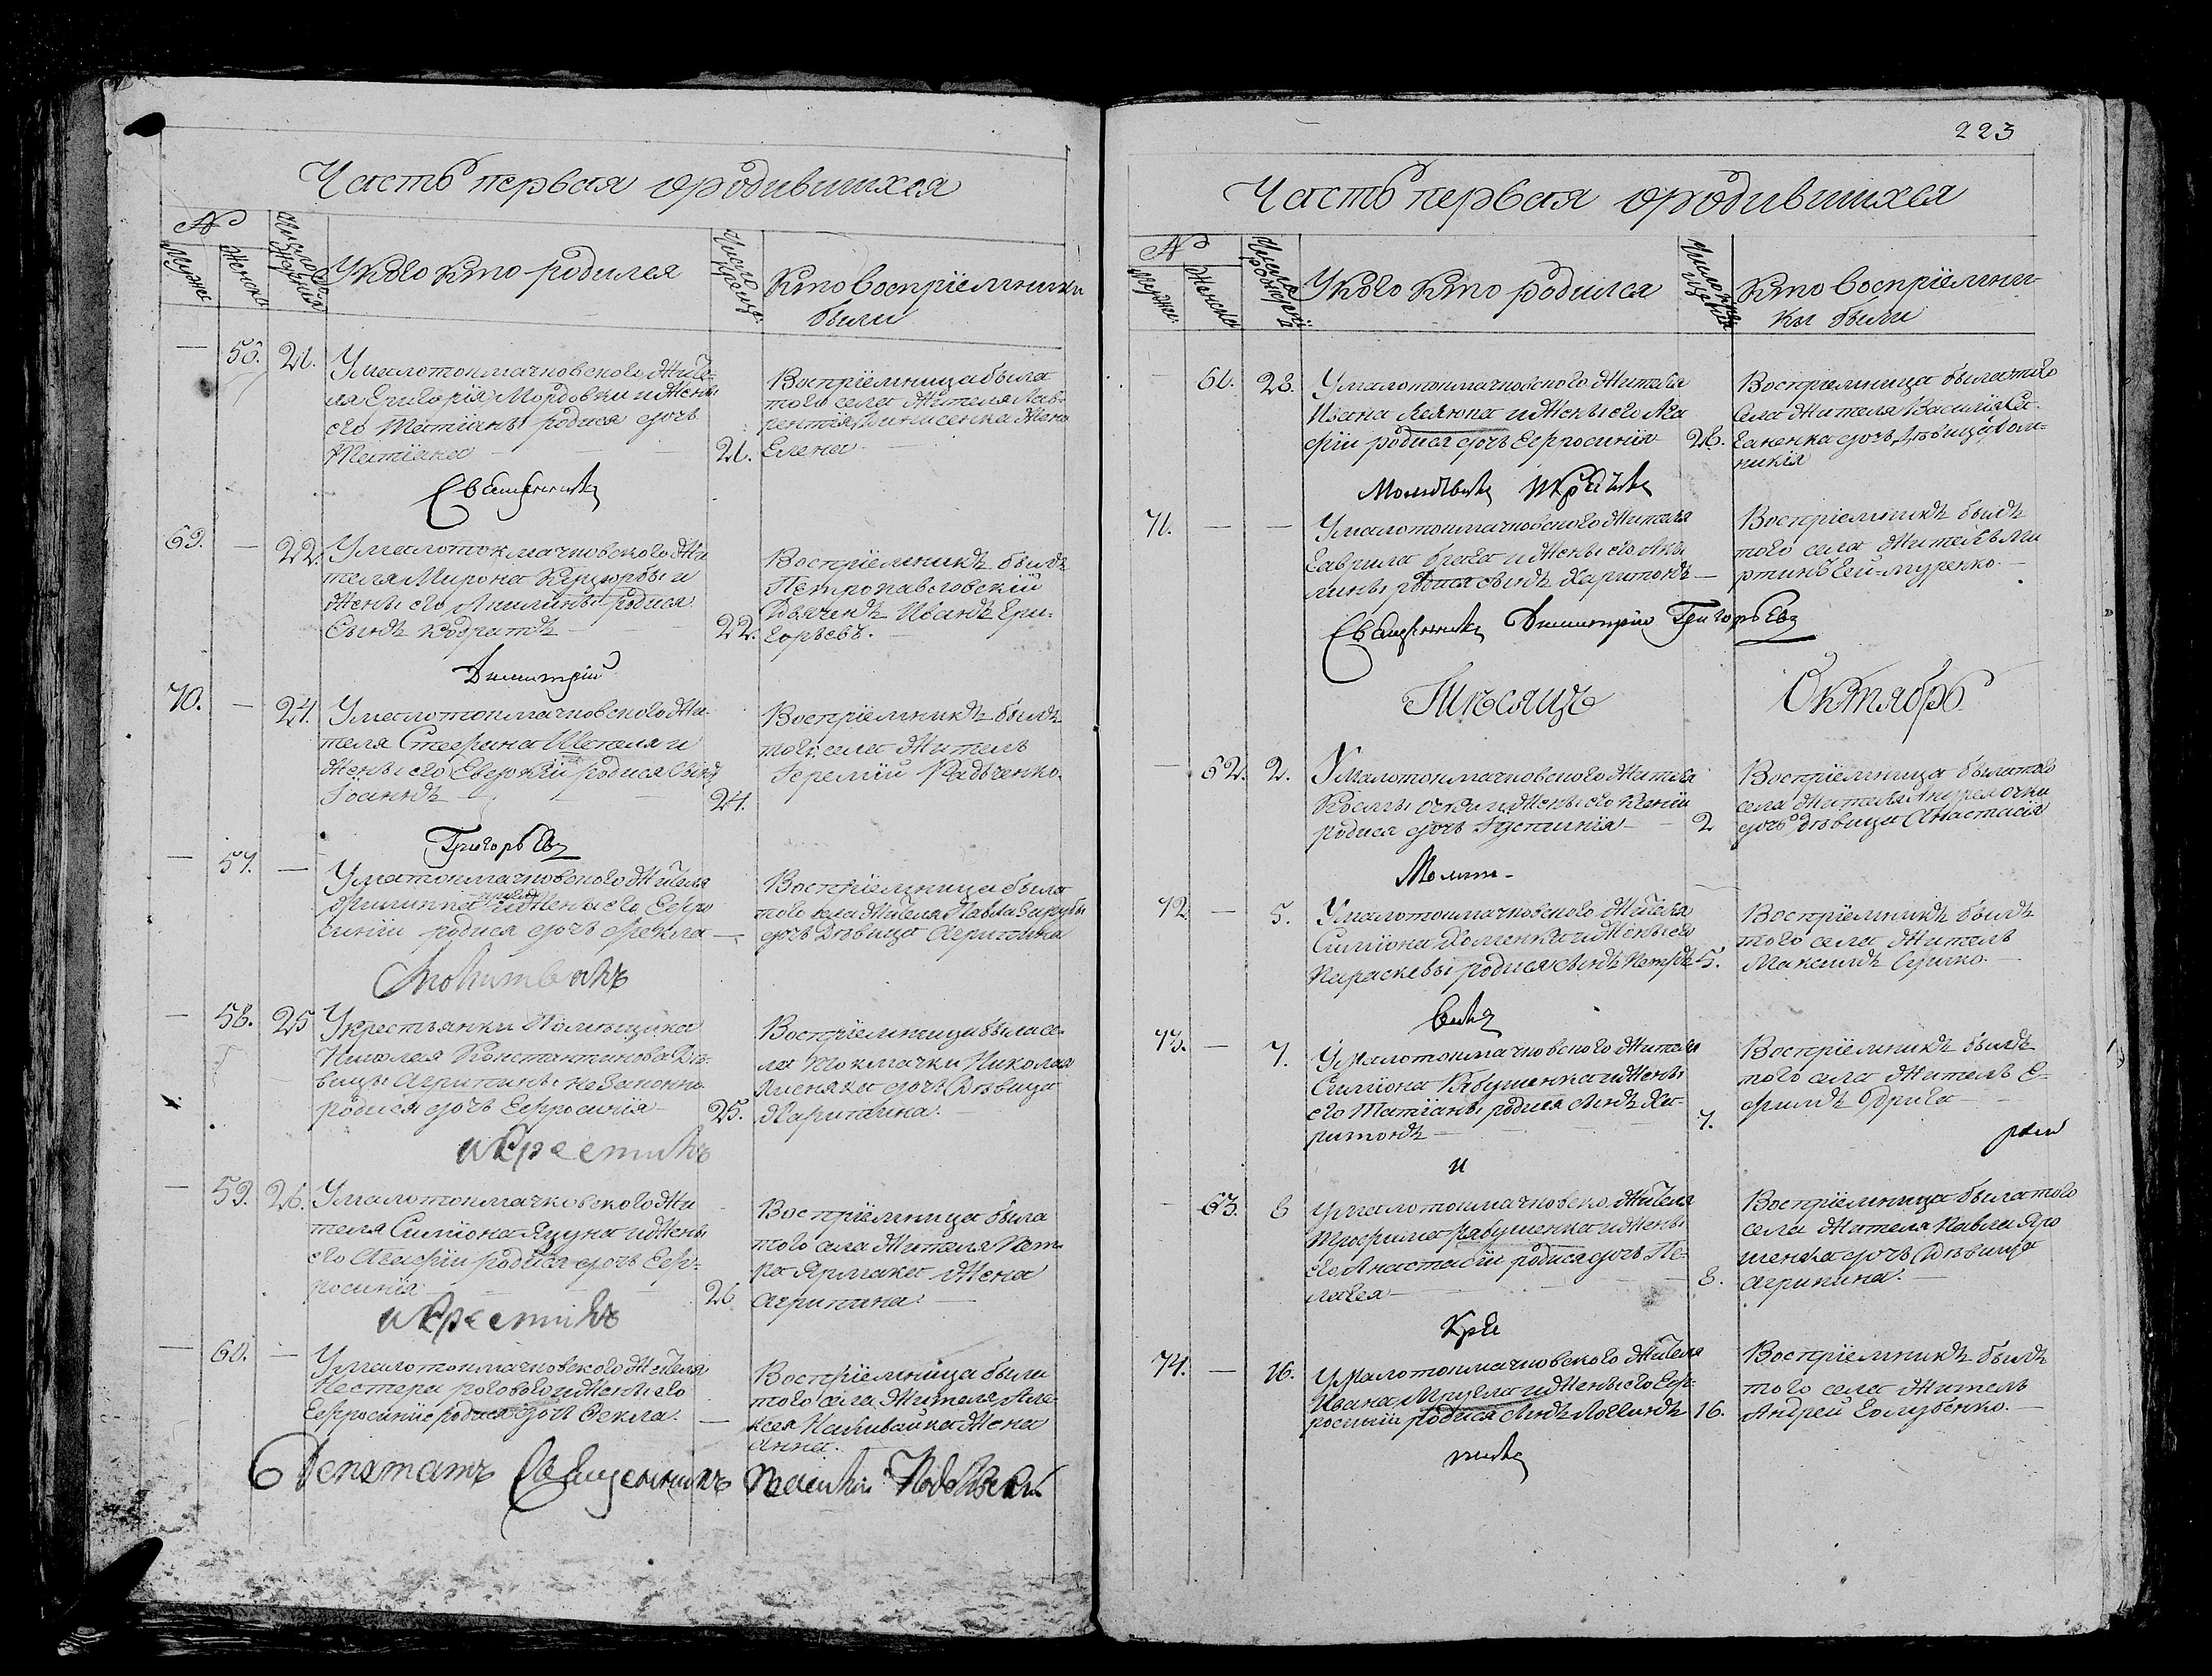 Часть первая ѡродившихся
№
Мужес
Женска
Число рожденія
У кого кто родился
Число крещ:
Кто воспріемники
были
— 56. 21. У малотокмачковского жите-
ля Григорія Мордовки и жены
его Татіаны родися дочь
Татіана — 21.
Воспріемница была
того села жителя Лав-
рентія Денисенка жена
Елена
Священникъ
69. — 22. У малотокмачковского жи
теля Мирона и
жены его Акилины родися
Сынъ Кодратъ — 22.
Воспріемникъ былъ
Петропавловскій
Дьяченъ Иванъ Гри-
горьевъ.
Димитрій
70. — 24. У малотокмачковского жи-
теля Стефана и
жены его Евдокіи родися Сынъ
Іоаннъ — 24.
Воспріемникъ былъ
того села житель
Іеремій Радченко.
Григорьевъ
— 57. — У матокмачковского жителя
Филиппа и жены его Ефро
синіи родися дочь Фекла —
Воспріемница была
того села жителя Павла Зарубы
дочь девица Агрипина
Молитвилъ
— 58. 25 У крестьянки помещика
Николая Константинова де-
вицы Агрипины незаконно
родися дочь Ефросинія — 25.
Воспріемница была се-
ла Токмачки Николая
дочь девица
Харитина.
и крестилъ
— 59. 26. У малотокмачковского жи
теля Симіона Яцуна и жены
его Агафіи родися дочь Еф-
росинія — 26
Воспріемница была
того села жителя Пет-
ра Ярмака жена
Агрипина. —
и крестилъ
— 60. — У малотокмачковского жителя
Нестера рогового и жены его
Ефросиніе родися дочь Фекла. —
Воспріемница была
того села жителя Але-
ксея Наливайка жена
Анна.
Депутатъ Священникъ
223
Часть первая ѡродившихся
№
Мужес.
Женска
Число рожденія
У кого кто родился
Число крещенія
Кто воспріемни-
ки были
— 61. 28. У малотокмачковского жителя
Ивана и жены его Ага
фіи родися дочь Ефросинія 28.
Воспріемница была того
села жителя Василія Га-
ненка дочь девица Дом-
никія
Молитвилъ и крестилъ
71. — — У малотокмачковского жителя
Гаврила и жены его Аки
лины родися сынъ Харитонъ —
Воспріемникъ былъ
того села житель Ма
ртинъ Гей-муренко. —
Священникъ Димитрій Григорьевъ
Месяцъ Октябрь
— 62. 2. У малотокмачковского жителя
Козмы и жены его Ксеніи
родися дочь Іустинія — 2
Воспріемница была того
села жителя Андрея очки
дочь девица Анастасія
Молит-
72 — 5. У малотокмачковского жителя
Симіона Хоменка и жены его
Параскевы родися сынъ Петръ 5.
Воспріемникъ былъ
того села житель
Максимъ —
вилъ
73. — 7. У малотокмачковского жителя
Симіона Рябушенка и жены
его Татіаны родися сынъ Ха-
ритонъ — 7.
Воспріемникъ былъ
того села житель Е-
фимъ —
и
— 63. 8 У малотокмачковско. жителя
Трофима Рябушенка и жены
его Анастасіи родися дочь Пе-
лагея — 8.
Воспріемница была того
села жителя Павла Яро
шенка дочь девица
Агрипина. —
Кре
74. — 16. У малотокмачковского жителя
Ивана и жены его Еф-
росиніи родися сынъ Логгинъ 16.
Воспріемникъ былъ
того села житель
Андрей Голубенко. —
стилъ